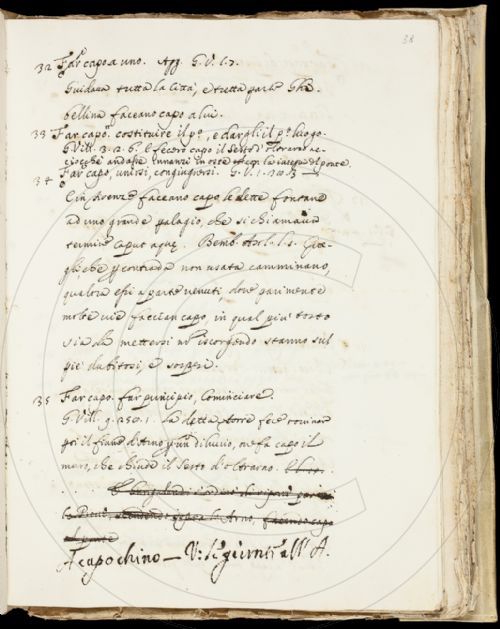 38
32 Far capo a uno. Agg. G. V. l. 7.
Guidava tutta la Città, e tutta parte Ghi-
bellina faceano capo a lui.
33 Far capo, costituire il p.º, e dargli il p.º luogo.
G. Vill. 3. 2. 6. E fecero capo il Sesto d'Oltrarno ac-
ciocchè andasse innanzi in oste
34 Far capo, unirsi, congiugnersi. G. V. 1.
E in Firenze faceano capo le dette fontane
ad uno grande palagio, che si chiamava
termine caput aque. Bemb. Asol. l. 1.
che p contrada non usata camminano,
qualora essi a parte venuti, dove parimente
molte vie faccian capo, in qual più tosto
sia da mettersi nō iscorgendo stanno sul
piè dubitosi, e sospesi.
35 Far capo. far principio, Cominciare.
G. Vill. 9. La detta Torre fece rovinar
poi il fiume d'Arno p un diluvio, ove fa capo il
muro, che chiude il Sesto d'Oltrarno.
di Arno, facendo capo
al ponte
A capo chino — V: